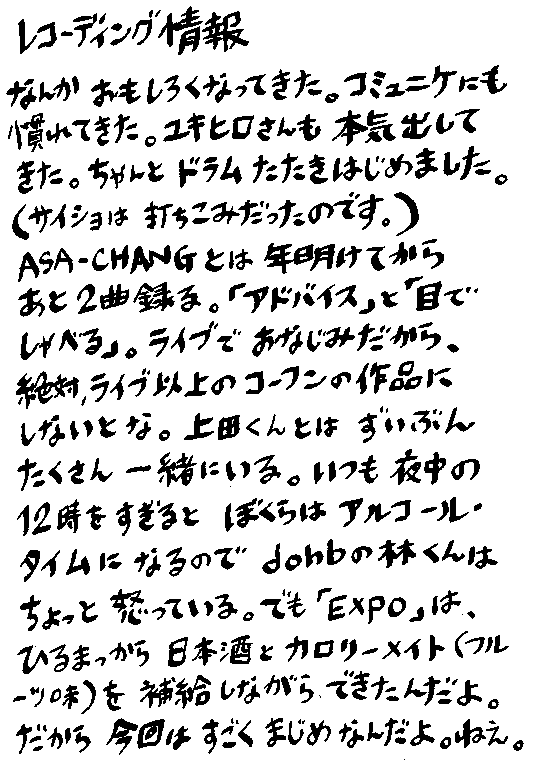 レコーディング情報
なんか おもしろくなってきた。コミュニケにも
慣れてきた。ユキヒロさんも 本気出して
きた。ちゃんと ドラム たたきはじめました。
(サイショは 打ちこみだったのです。)
ASA-CHANGとは 年明けてから
あと2曲録る。「アドバイス」と「目で
しゃべる」。ライブで おなじみだから、
絶対,ライブ以上のコーフンの作品に
しないとな。上田くんとは ずいぶん
たくさん 一緒にいる。いつも 夜中の
12時をすぎると ぼくらは アルコール・
タイムに なるので dohbの林くんは
ちょっと 怒っている。でも「EXPO」は、
ひるまっから 日本酒と カロリーメイト(フル
ーツ味)を 補給しながら、できたんだよ。
だから 今回は すごく まじめなんだよ。ねえ。